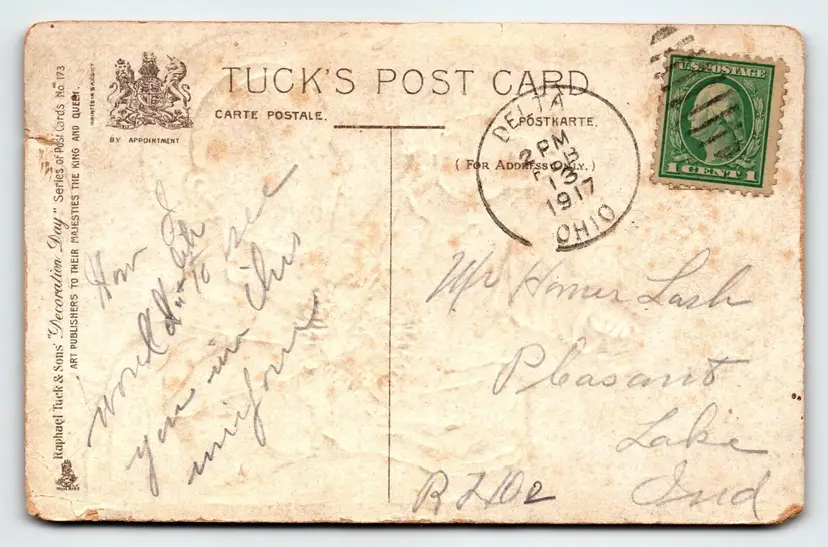 TUCK'S POST CARD
CARTE POSTALE.
POSTKARTE.
BY APPOINTMENT
(FOR ADDRESS ONLY.)
Raphael Tuck & Sons' "Decoration Day" Series of Post Cards No. 173
ART PUBLISHERS TO THEIR MAJESTIES THE KING AND QUEEN.
DELTA
2 PM
FEB
13
1917
OHIO
U.S. POSTAGE
1 CENT 1
How I
would like
to see
you in this
uniform
Mr Homer Lash
Pleasant
Lake
Ind